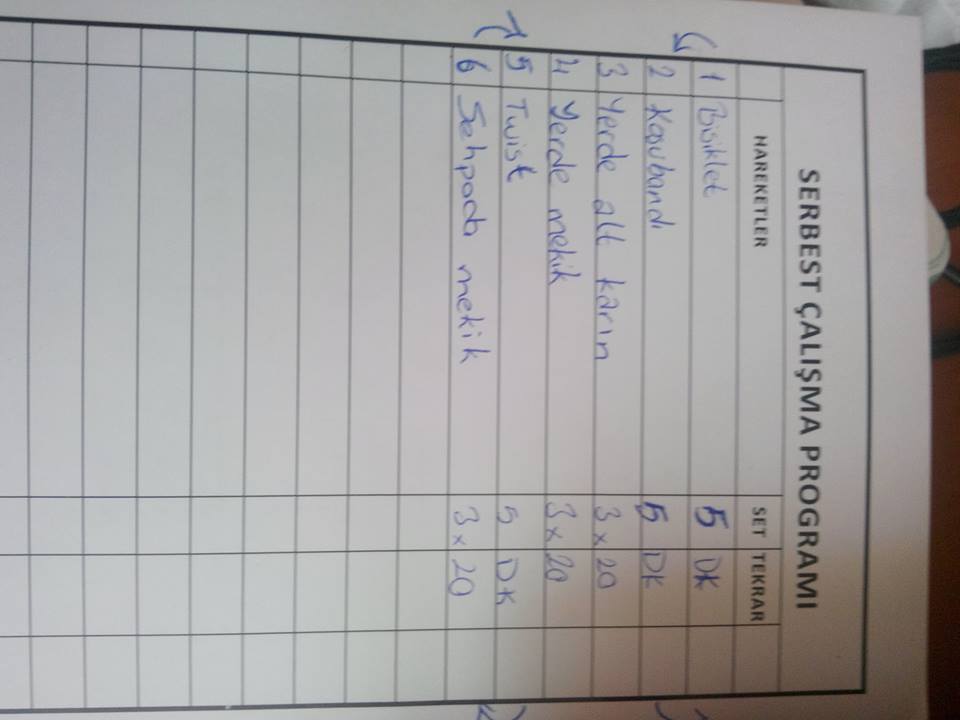 SERBEST ÇALIŞMA PROGRAMI
HAREKETLER SET TEKRAR
1 Bisiklet 5 DK
2 Koşubandı 5 DK
3 Yerde alt karın 3 x 20
4 Yerde mekik 3 x 20
5 Twist 5 DK
6 Sehpada mekik 3 x 20